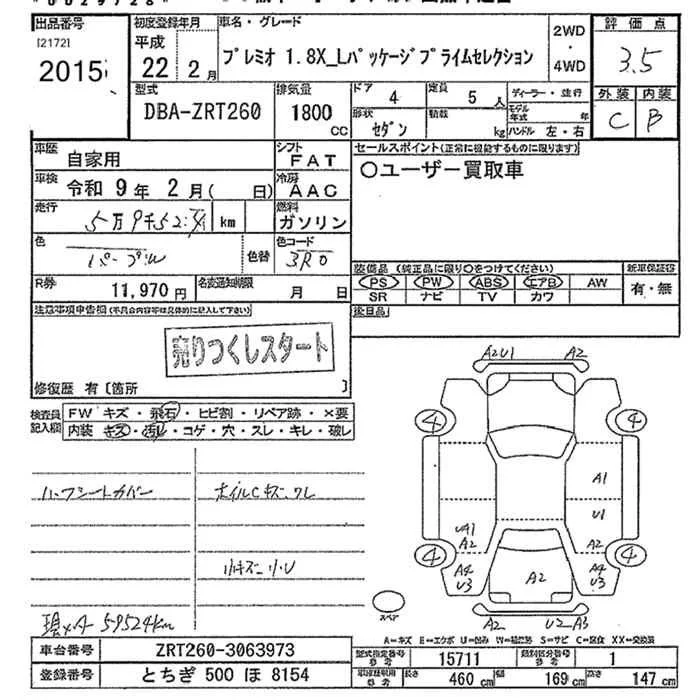 出品番号
[2172]
2015
初度登録年月
平成
22 2月
車名・グレード
プレミオ 1.8X_Lパッケージプライムセレクション
2WD
・
4WD
評価点
3.5
外装 内装
C B
型式
DBA-ZRT260
排気量
1800
CC
ドア 4
定員 5 人
形状 セダン
積載 kg
ディーラー・並行
モデル年式 年
ハンドル 左・右
車歴 自家用
シフト FAT
車検 令和 9年 2月( 日)
冷房 AAC
走行
km
燃料 ガソリン
色 パープル
色替
色コード 3R0
R券 11,970円
名変期限 月 日
セールスポイント(正常に機能するものに限ります)
○ユーザー買取車
装備品 (純正品に限り○をつけてください)
新車保証書
PS PW ABS エアB AW
SR ナビ TV カワ
有・無
後日品
注意事項申告欄(不具合内容等は具体的に記入して下さい)
売りつくしスタート
修復歴 有〔箇所 〕
検査員記入欄
FW キズ・飛石・ヒビ割・リペア跡・×要
内装 キズ・汚れ・コゲ・穴・スレ・キレ・破レ
ハーフシートカバー
ホイルCキズ、ワレ
小キズ、小U
現×A 59524km
A2U1 A2
4 4
A1
U1
UA1
A2
A2
4 4
A4
U3
A2
A4
U3
スペア
A2 U2 A3
A=キズ E=エクボ U=凹み W=補修跡 S=サビ C=腐食 XX=交換済
車台番号 ZRT260-3063973
登録番号 とちぎ 500 ほ 8154
型式指定番号 参考 15711
類別区分番号 参考 1
参考 長さ 460 cm 幅 169 cm 高さ 147 cm